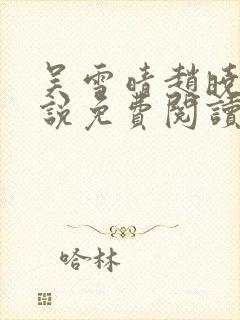 吴雪晴趙晓
說免費閱讀
哈林